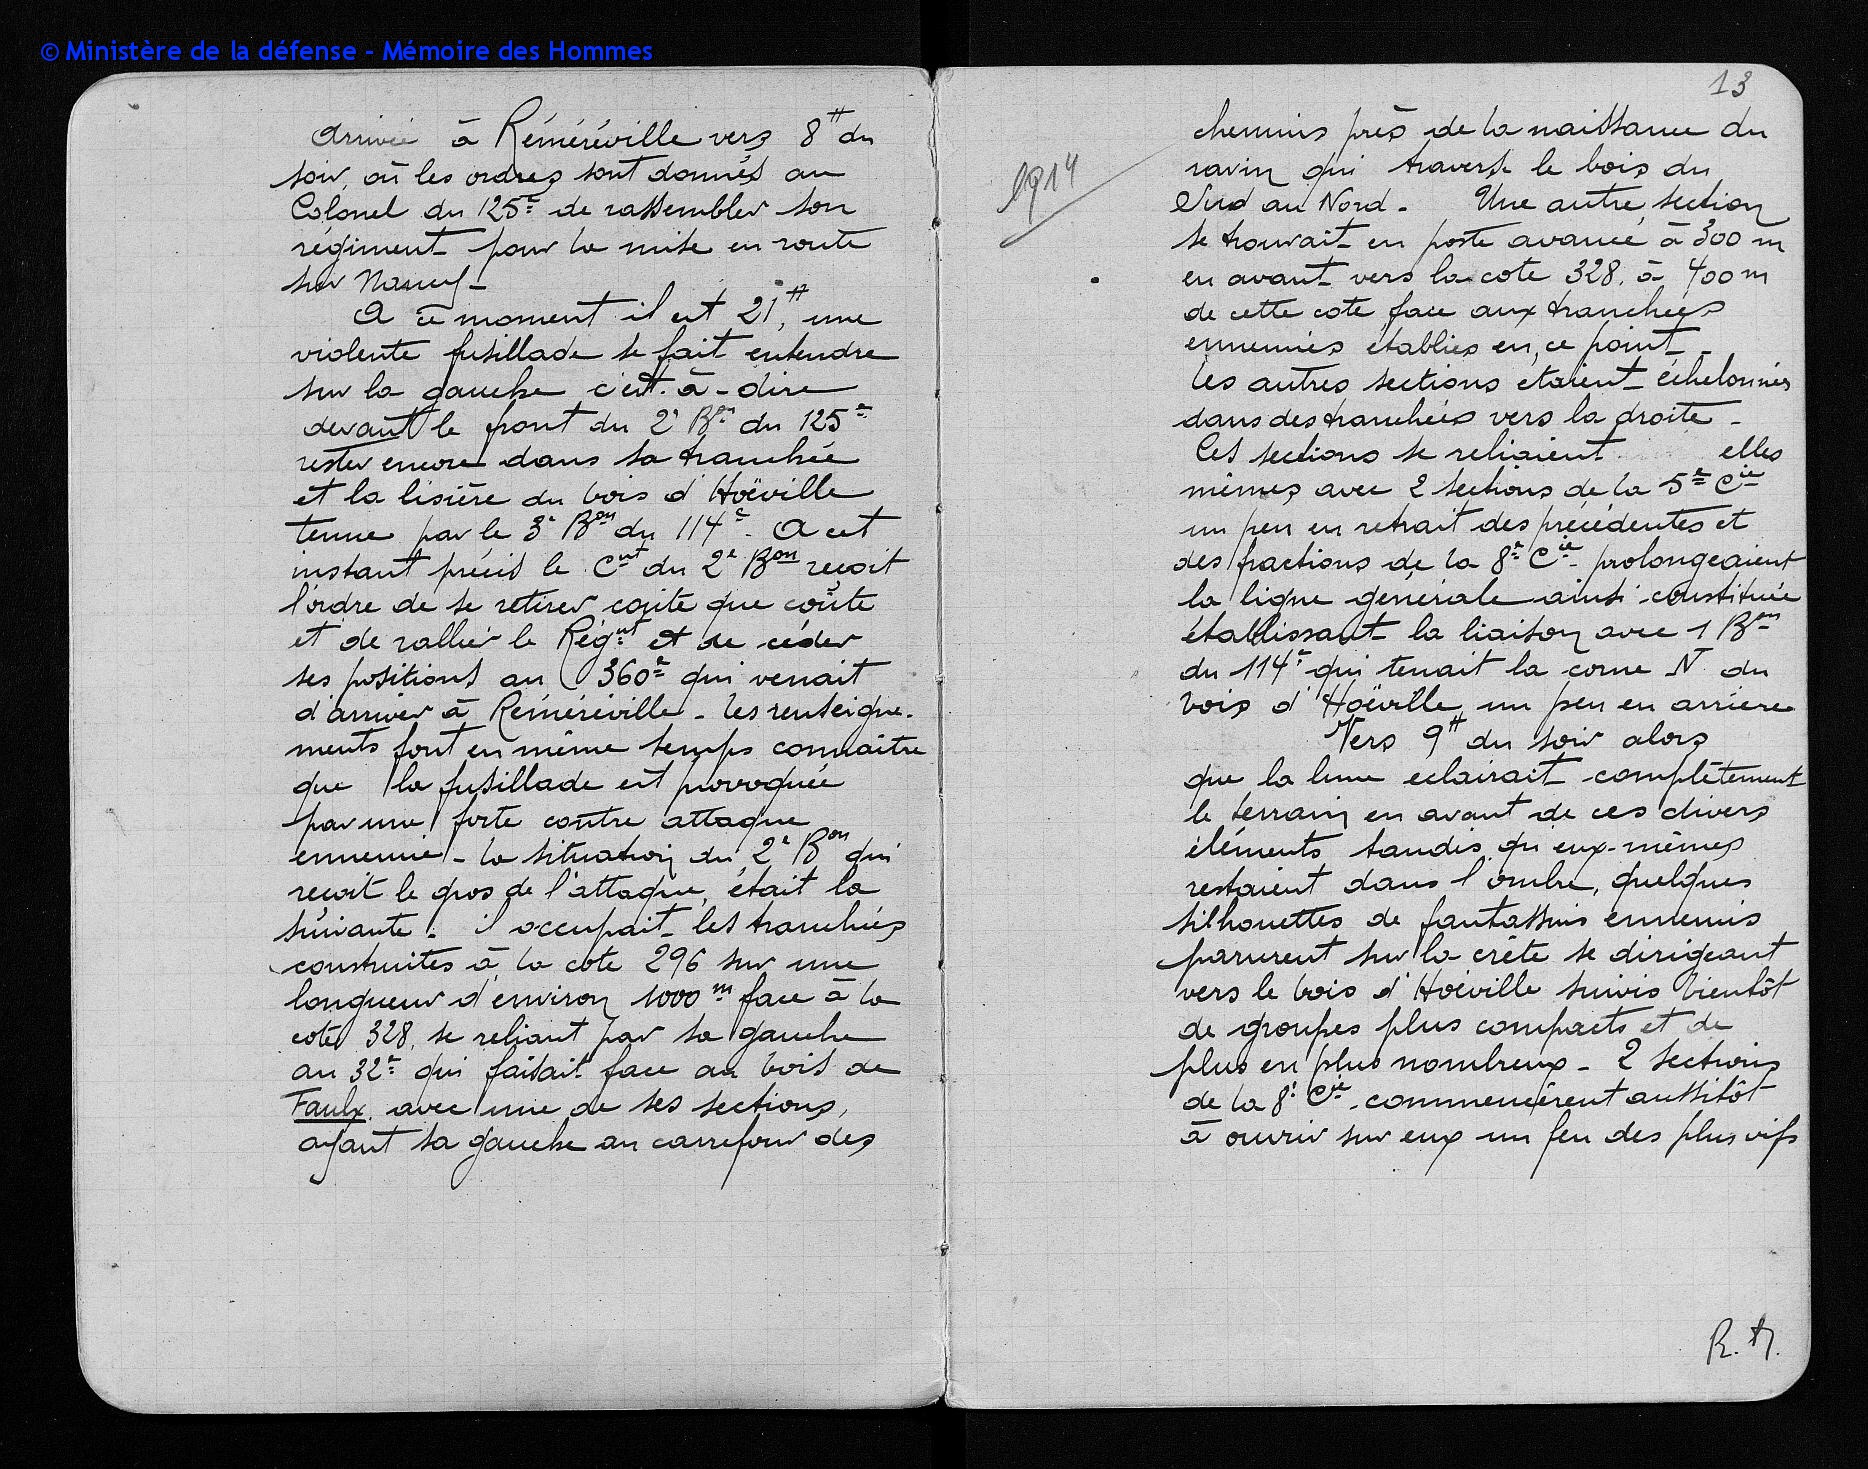 © Ministère de la défense - Mémoire des Hommes
Arrivée à Réméréville vers 8H du
soir, où les ordres sont donnés au
Colonel du 125e de rassembler son
régiment pour la mise en route
sur Nancy -
A ce moment il est 21H, une
violente fusillade se fait entendre
sur la gauche c'est-à-dire
devant le front du 2e Bon du 125e
resté encore dans sa tranchée
et la lisière du bois d'Hoëville
tenue par le 3e Bon du 114e - A cet
instant précis le Cnt du 2e Bon reçoit
l'ordre de se retirer coûte que coûte
et de rallier le Régnt et de céder
ses positions au 360e qui venait
d'arriver à Réméréville - Les renseigne-
ments font en même temps connaître
que la fusillade est provoquée
par une forte contre attaque
ennemie - La situation du 2e Bon qui
reçoit le gros de l'attaque, était la
suivante : il occupait les tranchées
construites à la cote 296 sur une
longueur d'environ 1000m face à la
cote 328, se reliant par sa gauche
au 32e qui faisait face au bois de
Faulx avec une de ses sections,
ayant sa gauche au carrefour des
13
1914
chemins près de la naissance du
ravin qui traverse le bois du
Sud au Nord - Une autre section
se trouvait en poste avancé à 300m
en avant vers la cote 328, à 400m
de cette cote face aux tranchées
ennemies établies en ce point -
Les autres sections étaient échelonnées
dans des tranchées vers la droite -
Ces sections se reliaient elles
mêmes avec 2 sections de la 5e Cie
un peu en retrait des précédentes et
des fractions de la 8e Cie prolongeaient
la ligne générale ainsi constituée
établissant la liaison avec 1 Bon
du 114e qui tenait la corne N. du
bois d'Hoëville un peu en arrière
Vers 9H du soir alors
que la lune éclairait complètement
le terrain en avant de ces divers
éléments tandis qu'eux-mêmes
restaient dans l'ombre, quelques
silhouettes de fantassins ennemis
parurent sur la crête se dirigeant
vers le bois d'Hoëville suivis bientôt
de groupes plus compacts et de
plus en plus nombreux - 2 sections
de la 8e Cie commencèrent aussitôt
à ouvrir sur eux un feu des plus vifs